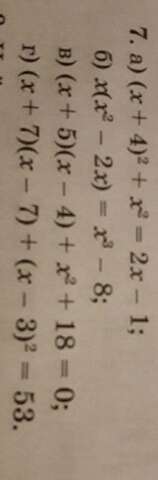 7. а) (x + 4)² + x² = 2x − 1;
б) x(x² − 2x) = x³ − 8;
в) (x + 5)(x − 4) + x² + 18 = 0;
г) (x + 7)(x − 7) + (x − 3)² = 53.